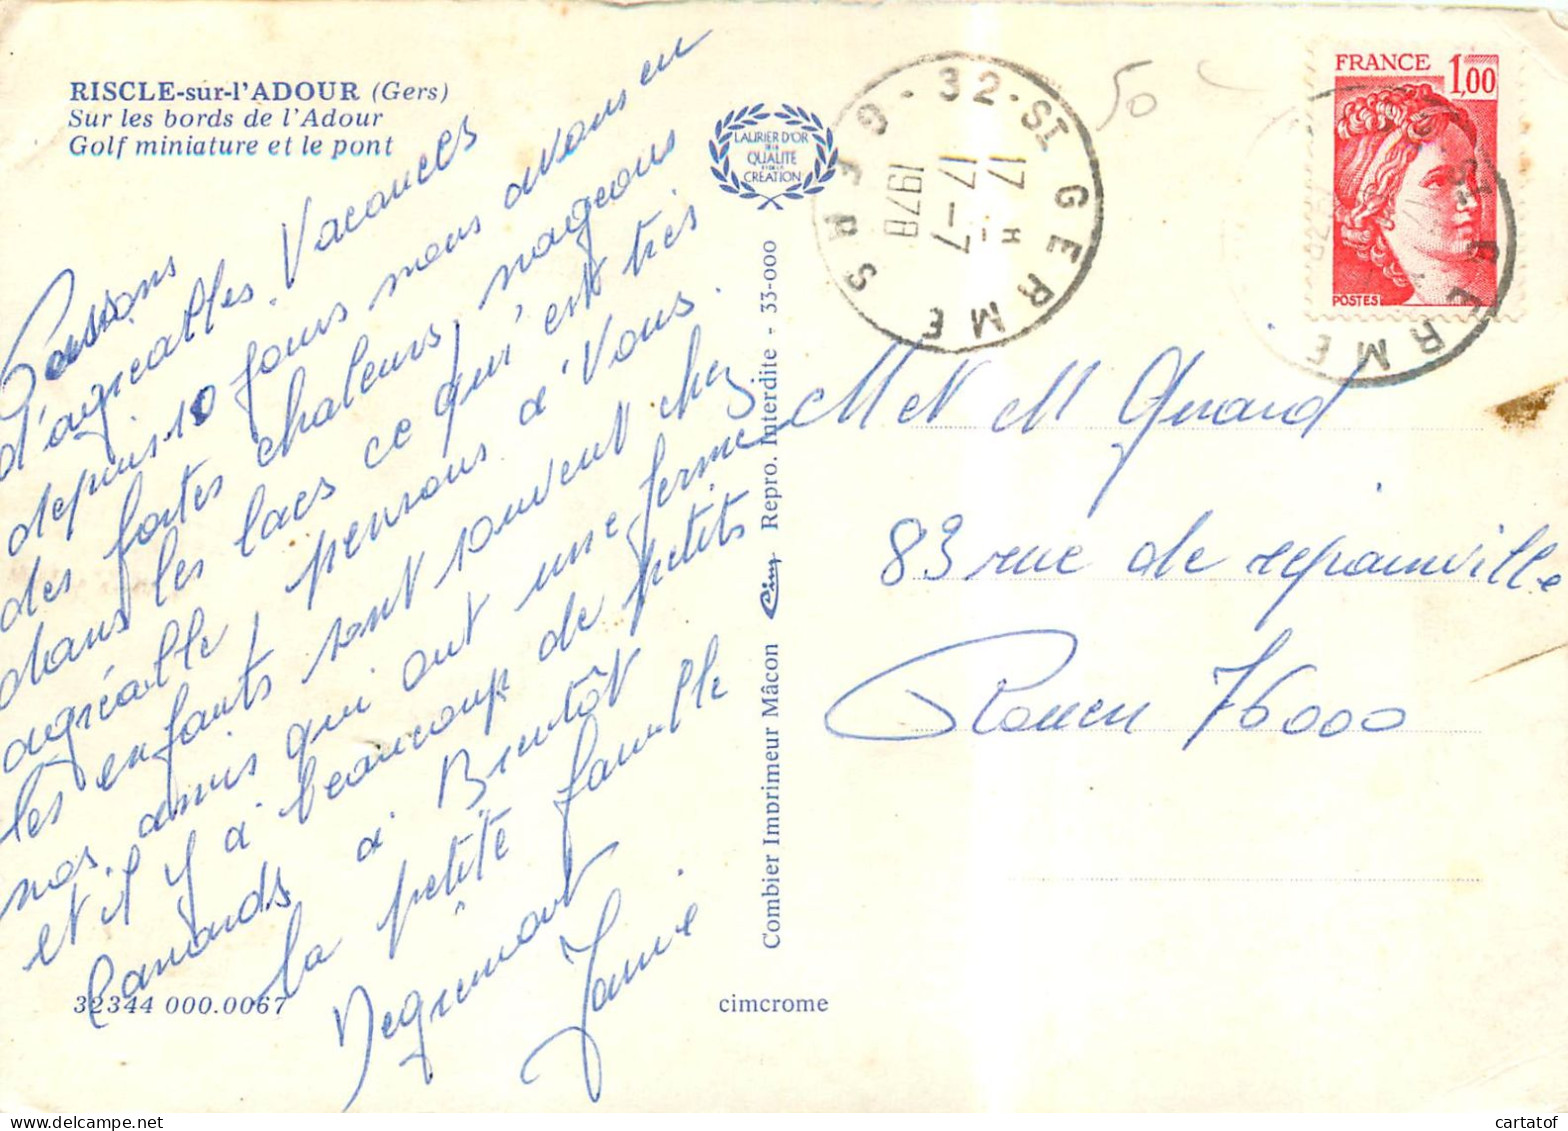 RISCLE-sur-l'ADOUR (Gers)
Sur les bords de l'Adour
Golf miniature et le pont
LAURIER D'OR
DE LA
QUALITÉ
CRÉATION
32-ST GERME
17 H
17-7
1978
GERS
50
FRANCE 1,00
POSTES
Passons
d'agréables Vacances
depuis 10 jours nous avons eu
des fortes chaleurs, nageons
dans les lacs ce qui est très
agréable, pensons à Vous.
les enfants sont souvent chez
nos amis qui ont une ferme
et il y à beaucoup de petits
Canards à Bientôt
la petite famille
Janie
M et M
83 rue de
Rouen 76000
Combier Imprimeur Mâcon Cim Repro. Interdite - 33-000
32344 000.0067
cimcrome
cartatof